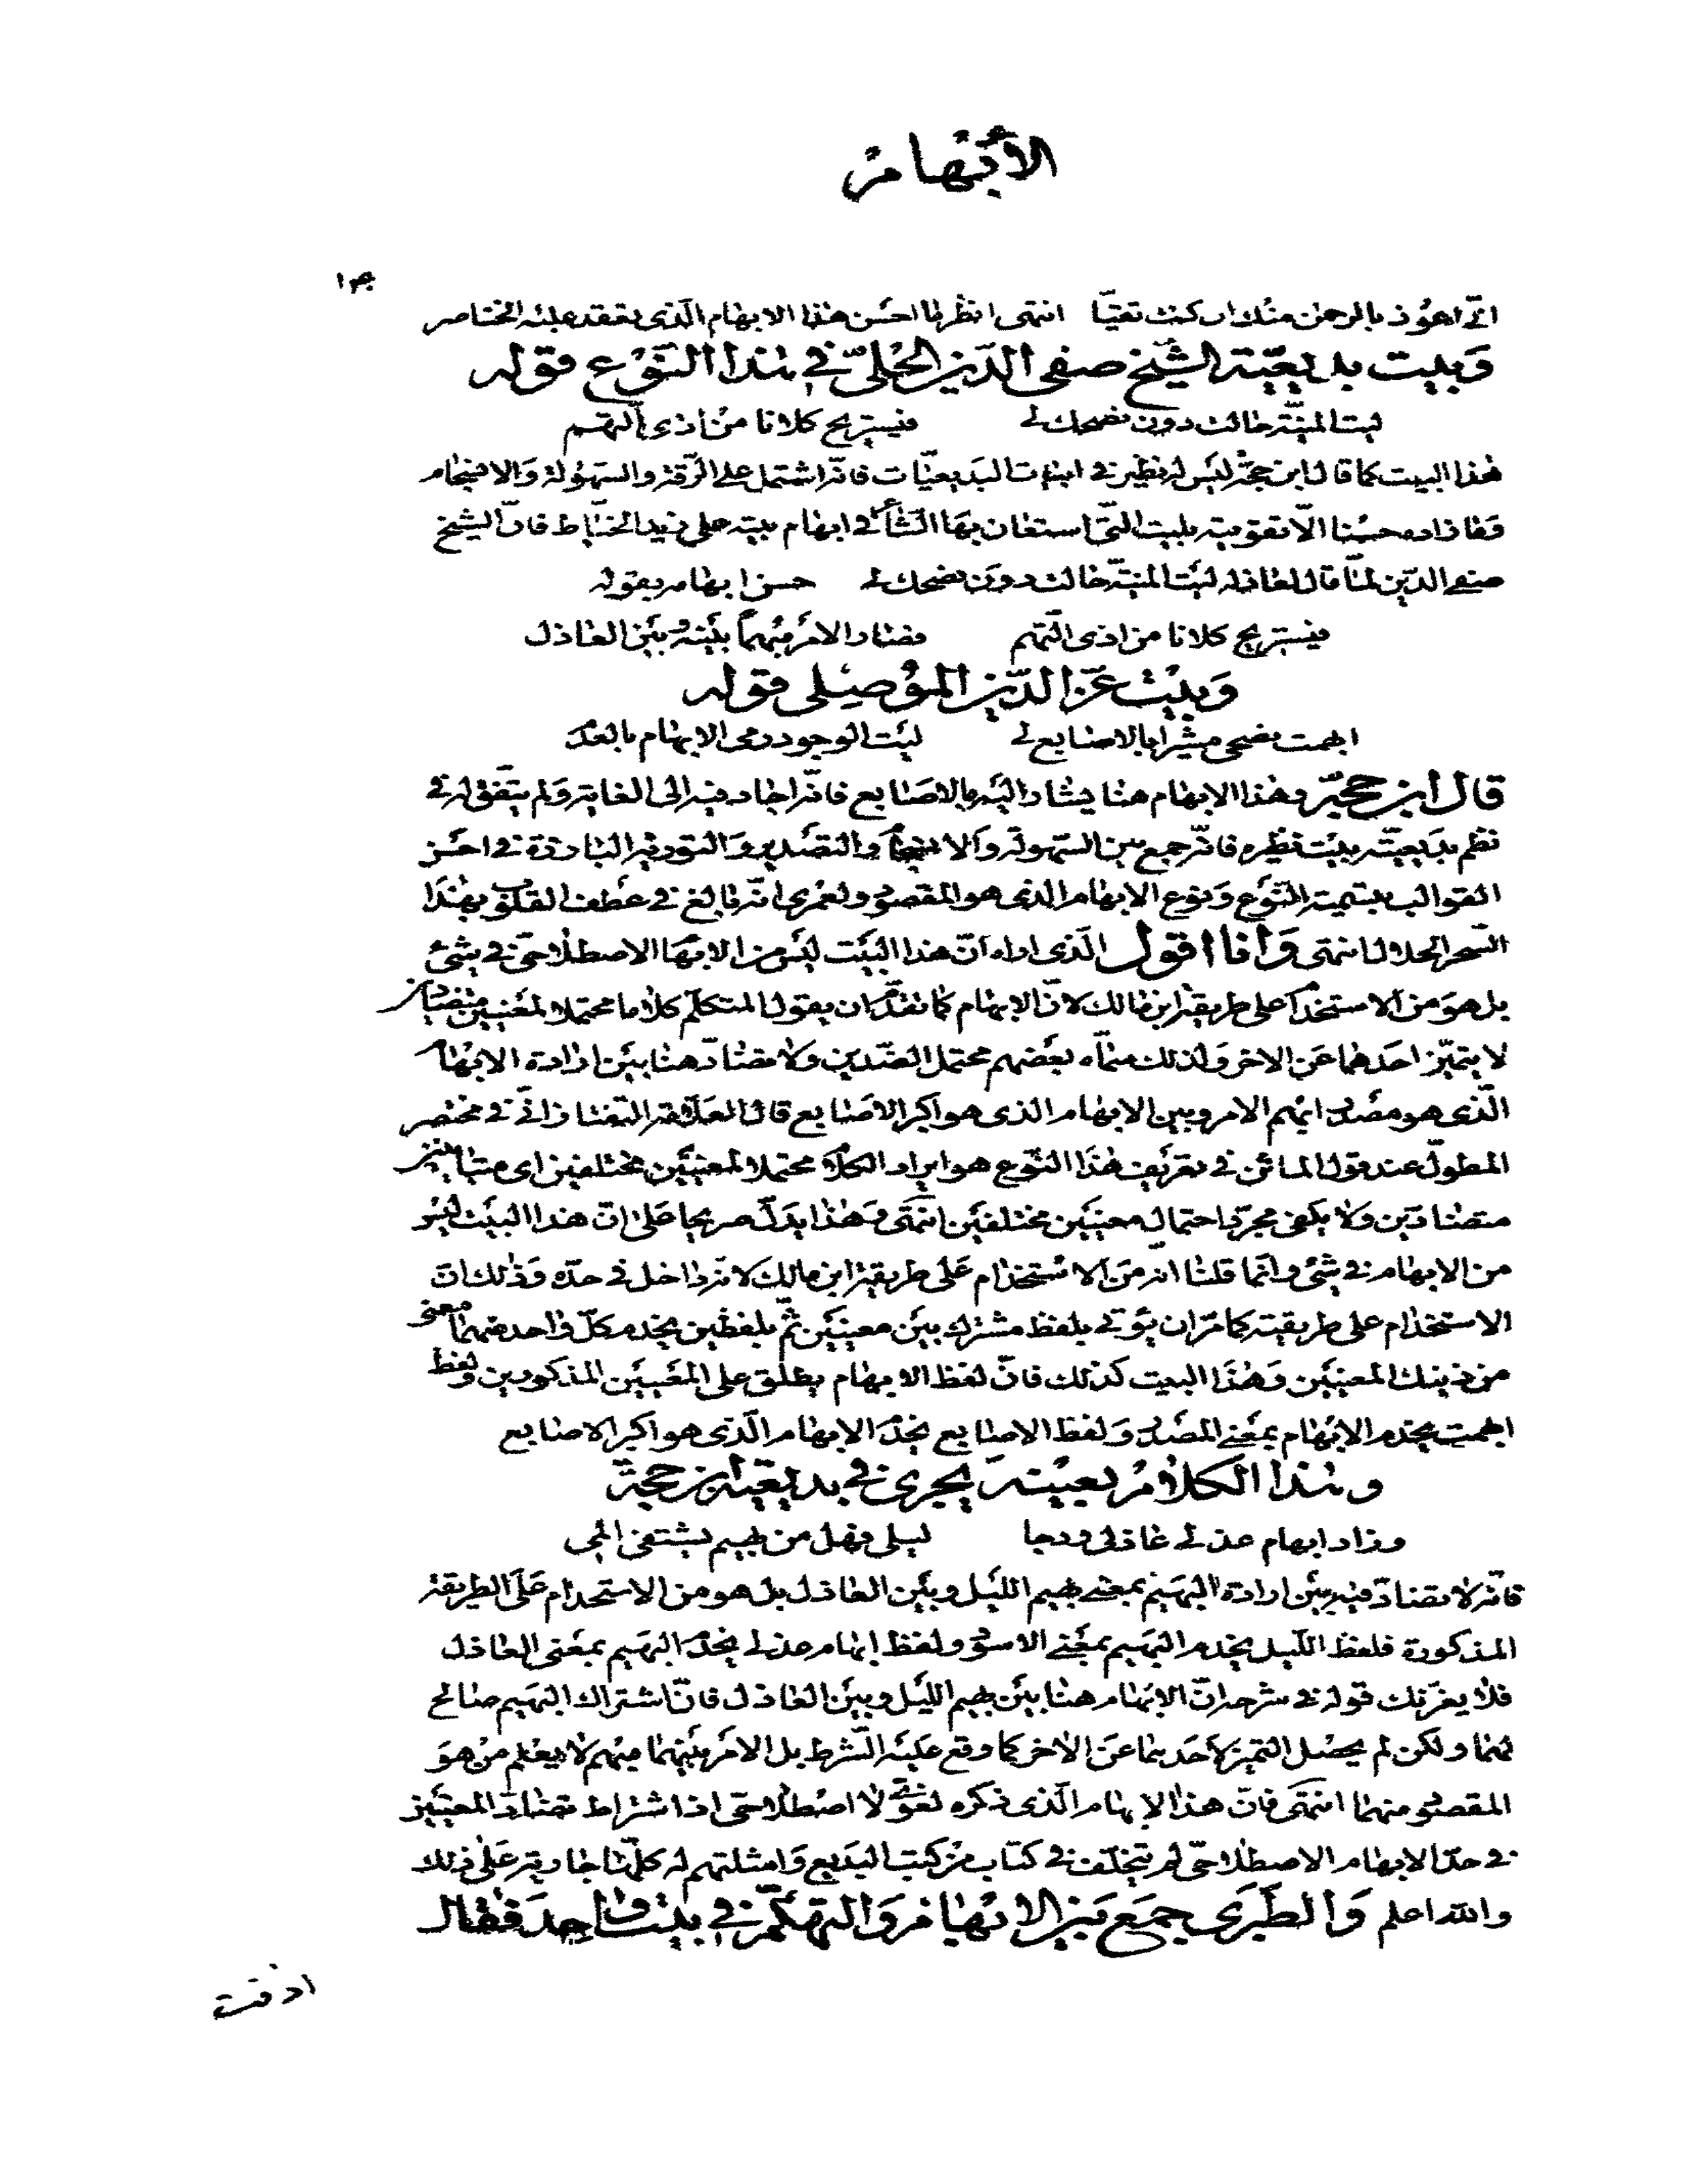 الأبهام
١٣٠
انّى اعوذ بالرحمن منك ان كنت تقيّا انتهى انظر ما احسن هذا الابهام الّذى تعقد عليه الخناصر
وبيت بديعيّة الشيخ صفى الدّين الحلّىّ فى هذا النّوع قوله
ليت المنيّة حالت دون نصحك لى فيستريح كلانا من اذى التّهم
هذا البيت كما قال ابن حجّة ليس له نظير فى ابيات البديعيّات فانّه اشتمل على الرّقّة والسّهولة والانسجام
وما زاده حسنا الّا تقويته بليت الّتى استعان بها الشّاعر فى ابهام بيته على زيد الخيّاط فانّ الشيخ
صفى الدّين لمّا قال لعاذله ليت المنيّة حالت دون نصحك لى حسن ابهامه بقوله
فيستريح كلانا من اذى التّهم فصار الامر مبهما بينه وبين العاذل
وبيت عزّ الدّين الموصلى قوله
ابهمت نصحى مشيرا بالاصابع لى ليت الوجود رمى الابهام بالعدم
قال ابن حجّة وهذا الابهام هنا يشار اليه بالاصابع فانّه اجاد فيه الى الغاية ولم يتّفق له فى
نظم بديعيّته بيت نظيره فانّه جمع بين السّهولة والانسجام والتّصدير والتّورية البارزة فى احسن
القوالب بتسمية النّوع ونوع الابهام الذى هو المقصود ولعمرى انّه بالغ فى عطف القلوب بهذا
السّحر الحلال انتهى وانا اقول الّذى اراه انّ هذا البيت ليس من الابهام الاصطلاحىّ فى شئ
بل هو من الاستخدام على طريقة ابن مالك لانّ الابهام كما تقدّم ان يقول المتكلّم كلاما محتملا لمعنيين متضادين
لا يتميّز احدهما عن الاخر ولذلك سمّاه بعضهم محتمل الضّدين ولا تضادّ هنا بين ارادة الابهام
الّذى هو مصدر ابهم الامر وبين الابهام الذى هو اكبر الاصابع قال العلّامة التّفتازانىّ فى مختصر
المطوّل عند قول الماتن فى تعريف هذا النّوع هو ايراد الكلام محتملا لمعنيين مختلفين اى متباينين
متضادّين ولا يكفى مجرّد احتمال معنيين مختلفين انتهى وهذا يدلّ صريحا على انّ هذا البيت ليس
من الابهام فى شئ وانّما قلنا انّه من الاستخدام على طريقة ابن مالك لانّه داخل فى حدّه وذلك انّ
الاستخدام على طريقته كما مرّ ان يؤتى بلفظ مشترك بين معنيين ثمّ بلفظين يخدم كلّ واحد منهما معنى
من ذينك المعنيين وهذا البيت كذلك فانّ لفظ الابهام يطلق على المعنيين المذكورين ولفظ
ابهمت يخدم الابهام بمعنى المصدر ولفظ الاصابع يخدم الابهام الّذى هو اكبر الاصابع
وهذا الكلام بعينه يجرى فى بديعيّة ابن حجّة
وزاد ابهام عذلى عاذلى ودجا ليلى فهل من بهيم يشتفى المى
فانّه لا تضادّ فيه بين ارادة البهيم بمعنى بهيم الليل وبين العاذل بل هو من الاستخدام على الطريقة
المذكورة فلفظ اللّيل يخدم البهيم بمعنى الاسود ولفظ ابهام عذلى يخدم البهيم بمعنى العاذل
فلا يغرّنك قوله فى شرحه انّ الابهام هنا بين بهيم الليل وبين العاذل فانّ اشتراك البهيم صالح
لهما ولكن لم يحصل التميز لاحدهما عن الاخر كما وقع عليه الشّرط بل الامر بينهما مبهم لا يعلم من هو
المقصود منهما انتهى فانّ هذا الابهام الّذى ذكره لغوىّ لا اصطلاحىّ اذ اشتراط تضادّ المعنيين
فى حدّ الابهام الاصطلاحىّ لم يتخلّف فى كتاب من كتب البديع وامثلتهم له كلّها جارية على ذلك
والله اعلم والطّبرى جمع بين الابهام والتهكّم فى بيت واحد فقال